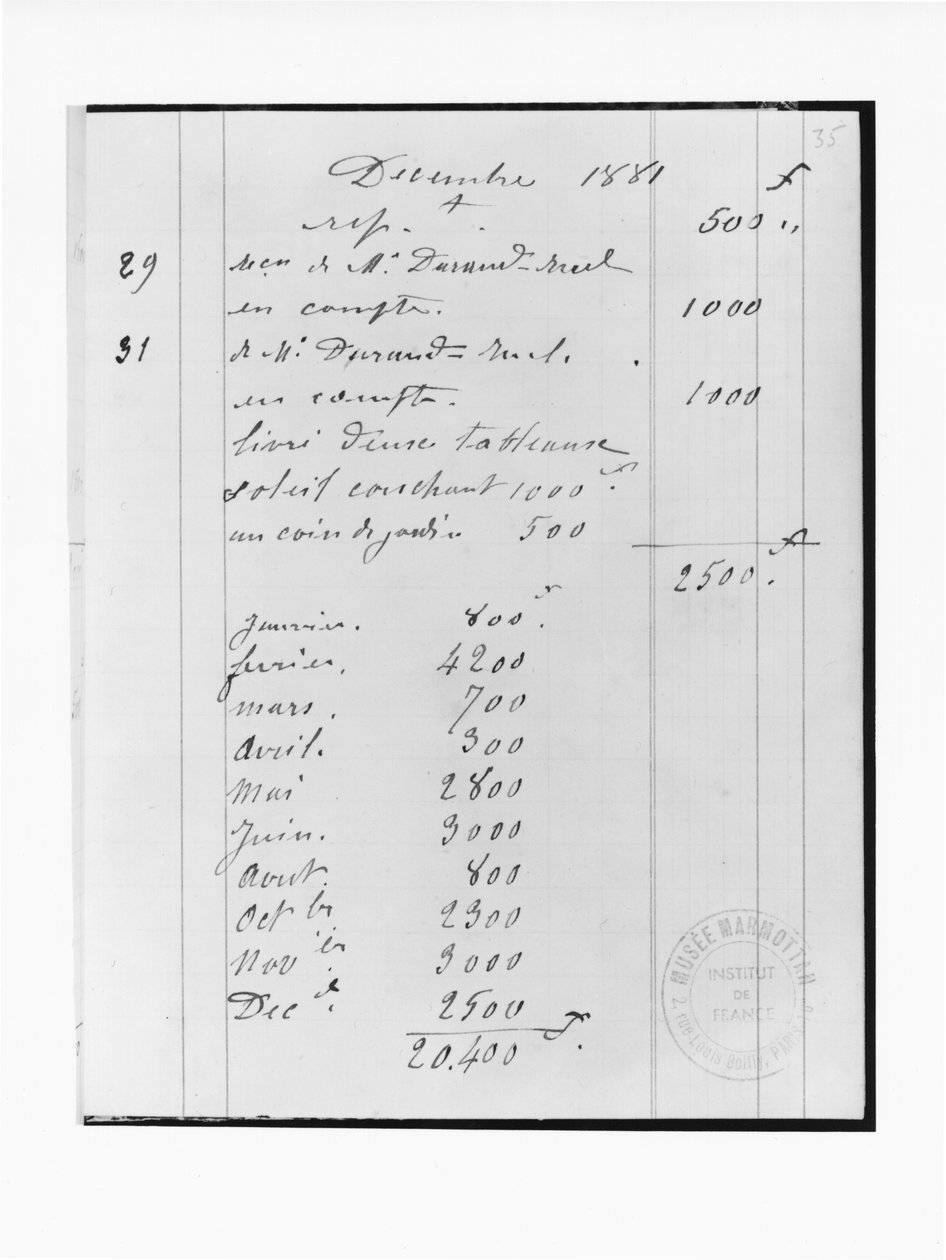 35
Decembre 1881 f
rep. 500 "
29 reçu de Mr. Durand-Ruel
en compte. 1000
31 de Mr. Durand=Ruel.
en compte. 1000
livré deux tableaux
soleil couchant 1000 f.
un coin de jardin 500
2500 f.
Janvier. 800 f.
fevrier. 4200
mars. 700
Avril. 300
Mai 2800
Juin. 3000
Aout. 800
Octbr 2300
Nov.br 3000
Dec.e 2500
20.400 f.
MUSÉE MARMOTTAN
INSTITUT
DE
FRANCE
2, rue Louis Boilly, PARIS-16e